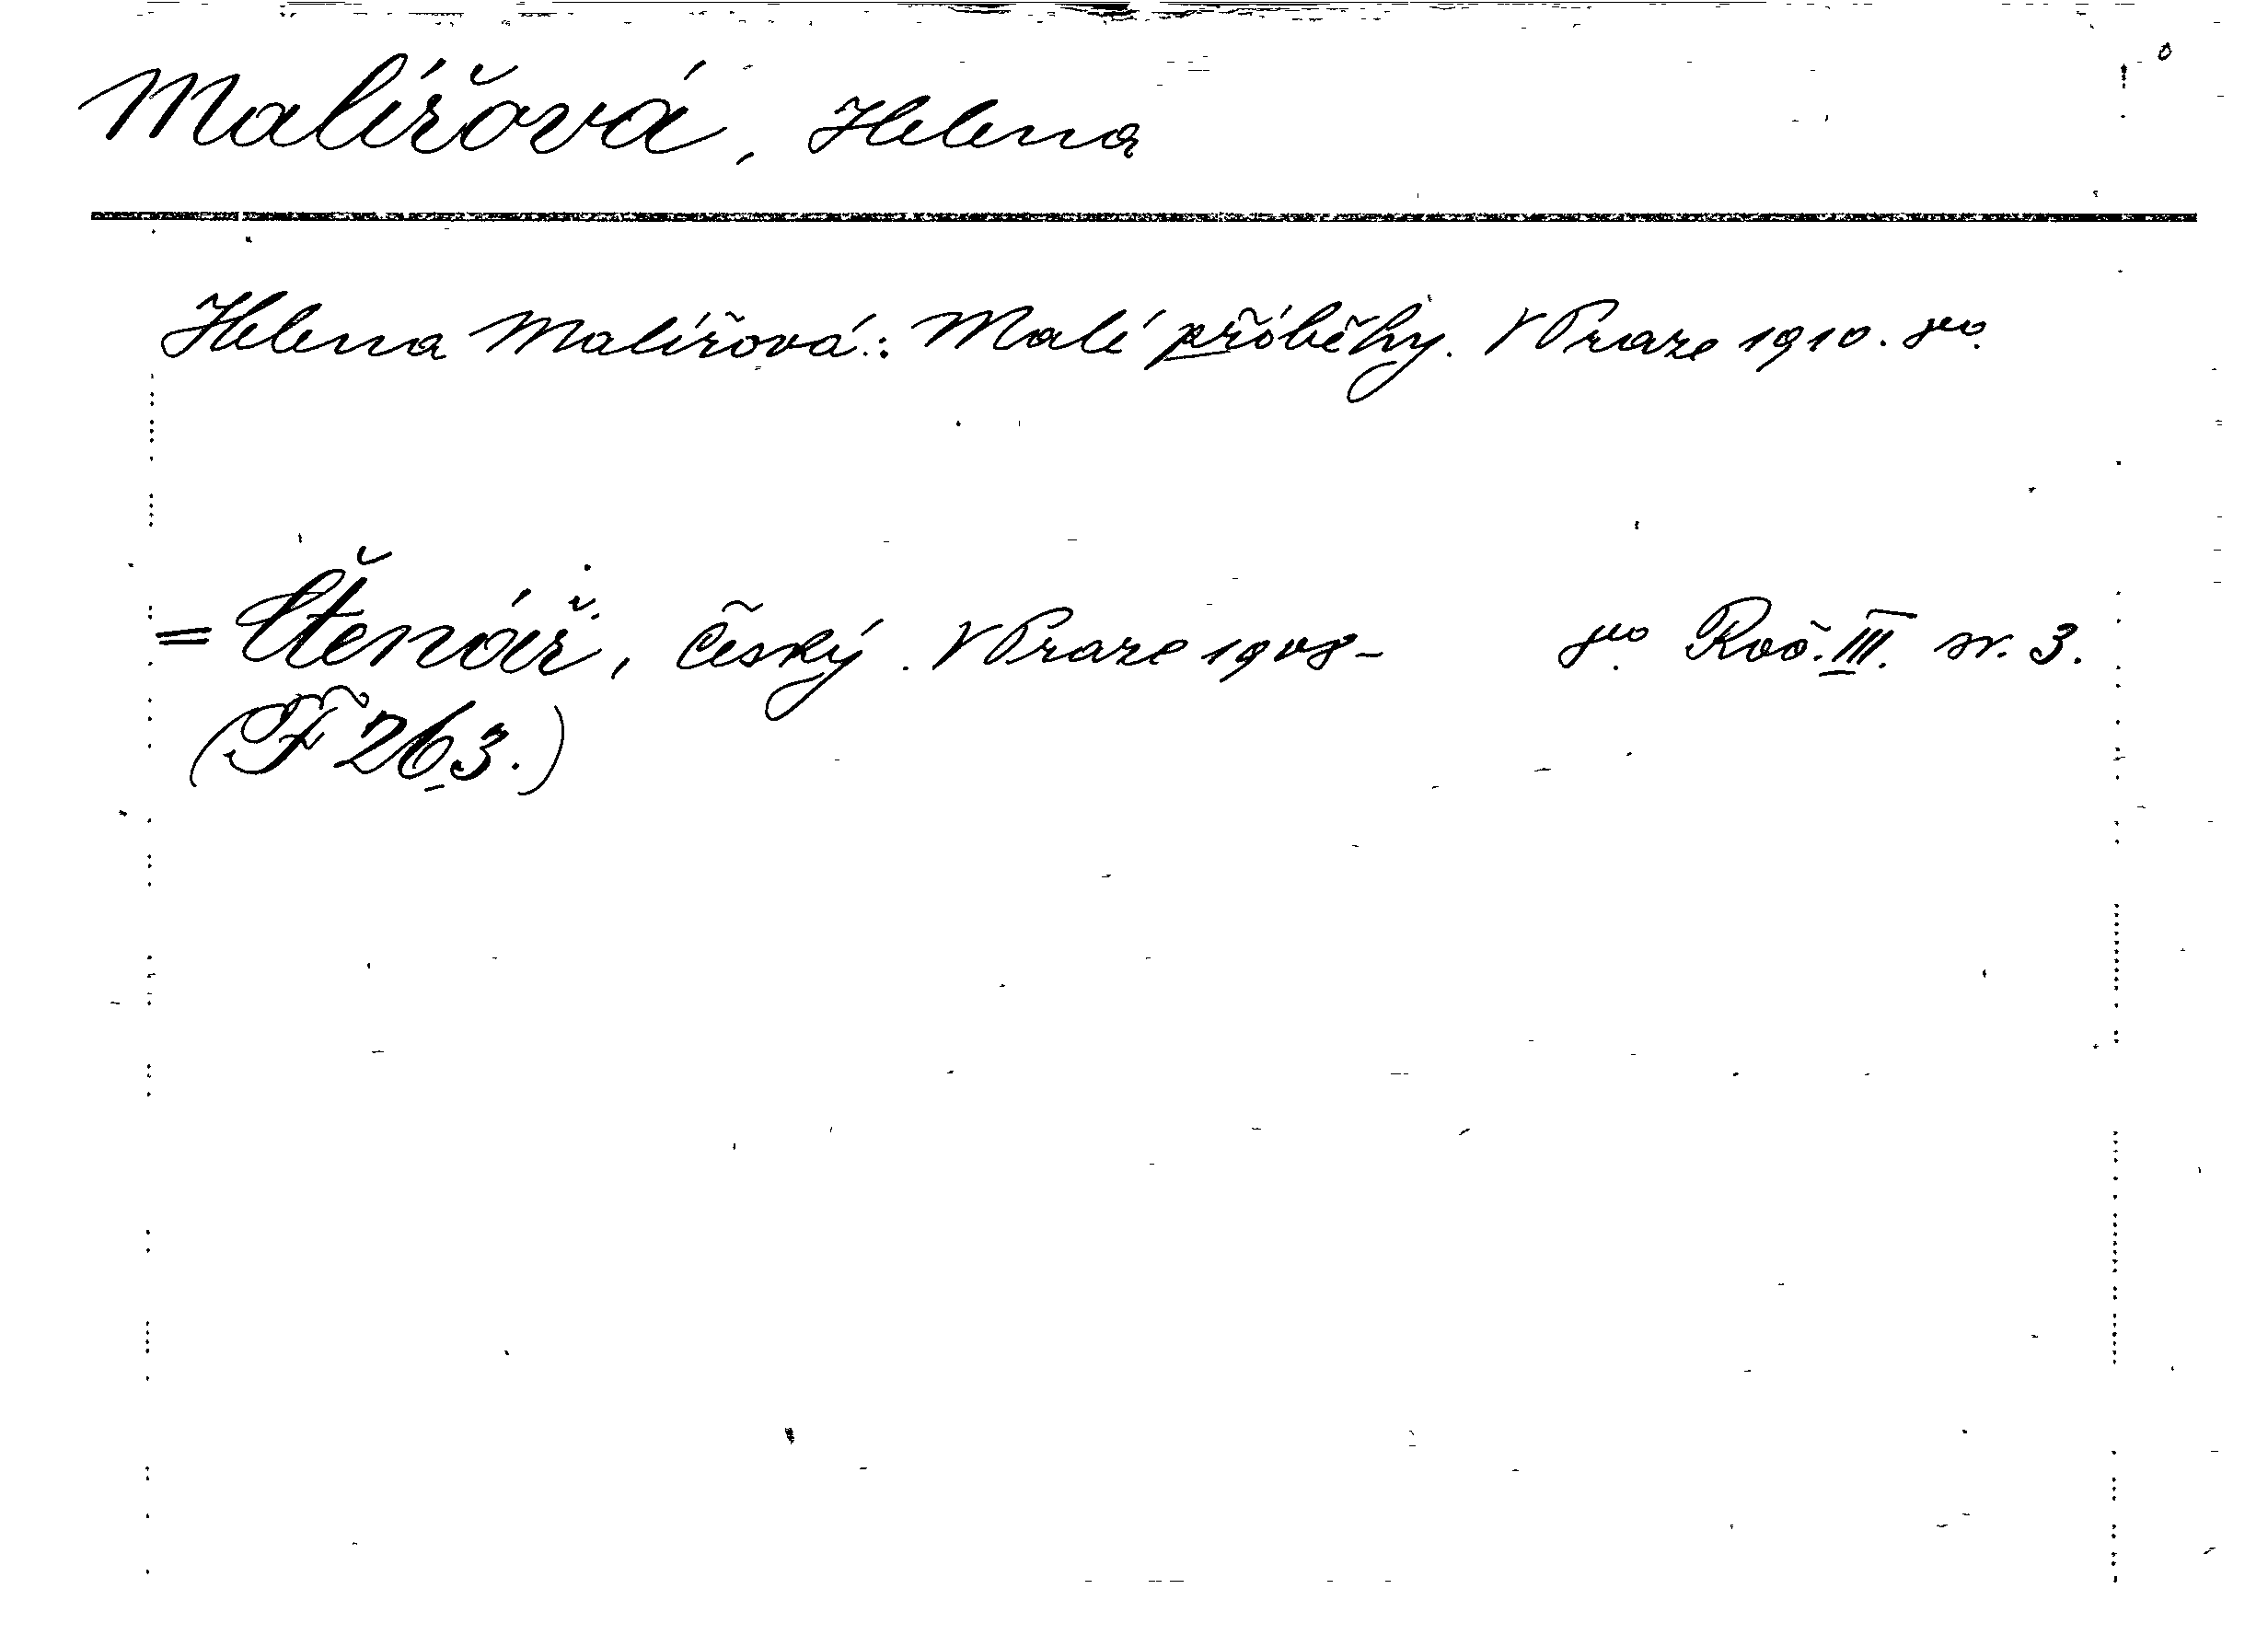 Malířová, Helena
Helena Malířová: Malé příběhy. V Praze 1910. 8vo.
= Čtenář, český. V Praze 1908- 8vo. Roč. III. sv. 3.
(F 263.)